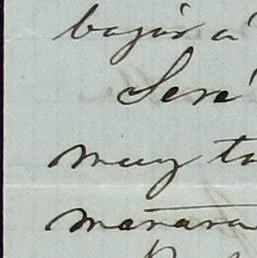 bajar á
Será
muy ta
mañana